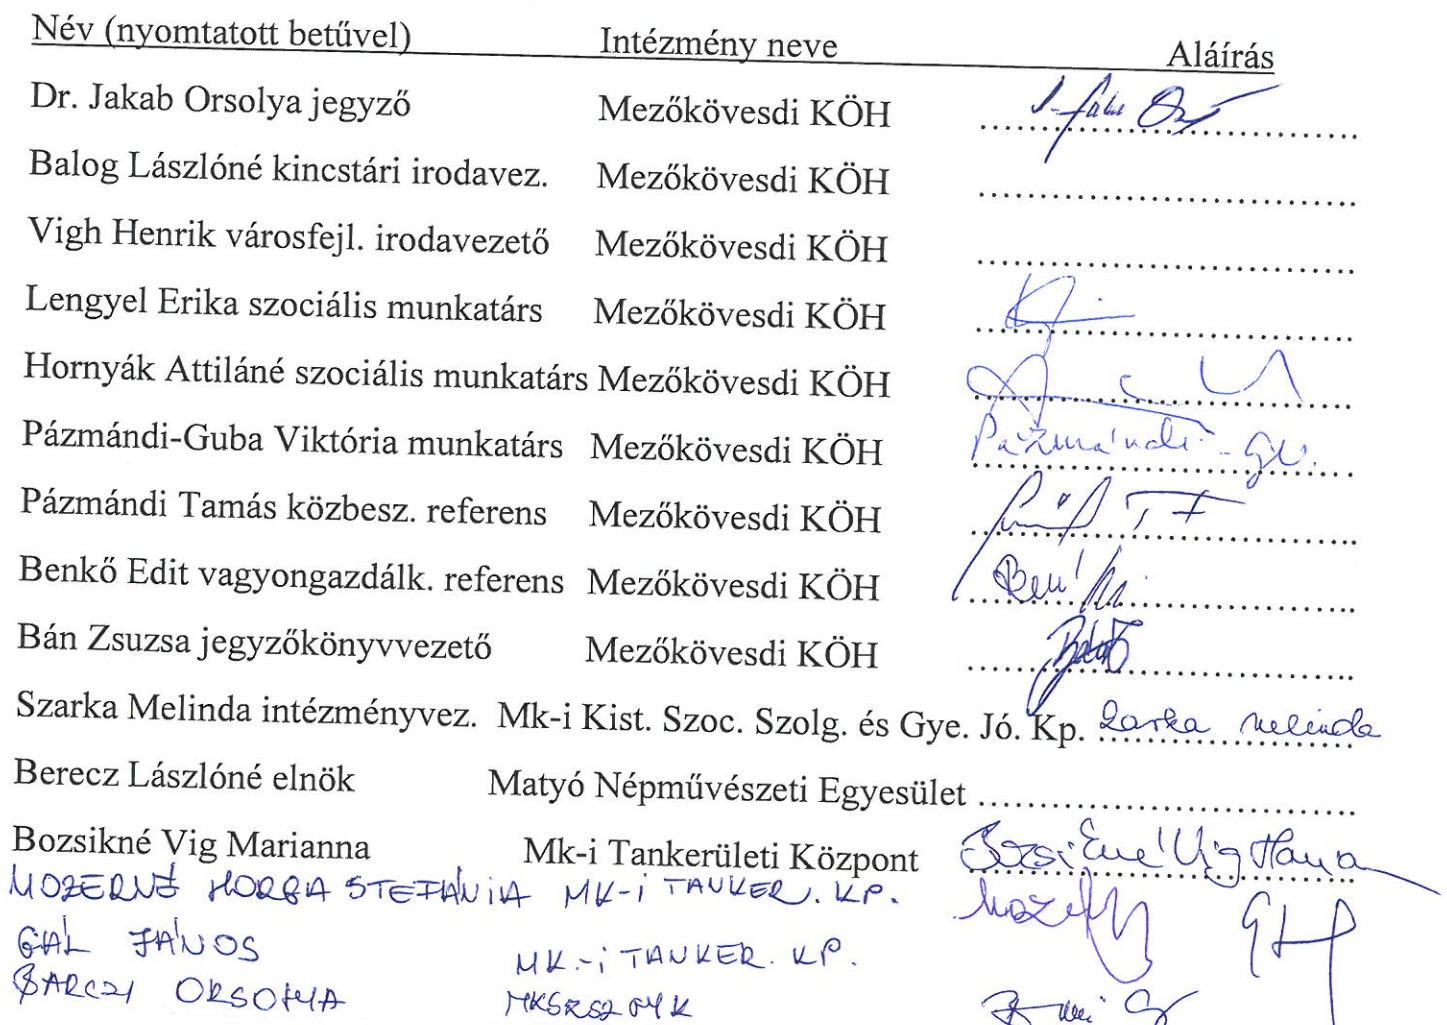 Név (nyomtatott betűvel) Intézmény neve Aláírás
Dr. Jakab Orsolya jegyző Mezőkövesdi KÖH
Balog Lászlóné kincstári irodavez. Mezőkövesdi KÖH ..............................
Vigh Henrik városfejl. irodavezető Mezőkövesdi KÖH ..............................
Lengyel Erika szociális munkatárs Mezőkövesdi KÖH
Hornyák Attiláné szociális munkatárs Mezőkövesdi KÖH
Pázmándi-Guba Viktória munkatárs Mezőkövesdi KÖH Pázmándi-Gu.
Pázmándi Tamás közbesz. referens Mezőkövesdi KÖH
Benkő Edit vagyongazdálk. referens Mezőkövesdi KÖH
Bán Zsuzsa jegyzőkönyvvezető Mezőkövesdi KÖH
Szarka Melinda intézményvez. Mk-i Kist. Szoc. Szolg. és Gye. Jó. Kp. Szarka Melinda
Berecz Lászlóné elnök Matyó Népművészeti Egyesület ..............................
Bozsikné Vig Marianna Mk-i Tankerületi Központ Bozsikné Vig Marianna
MOZERNÉ HORGA STEFÁNIA MK-i TANKER. KP.
GÁL JÁNOS MK-i TANKER. KP.
BARCZI ORSOLYA